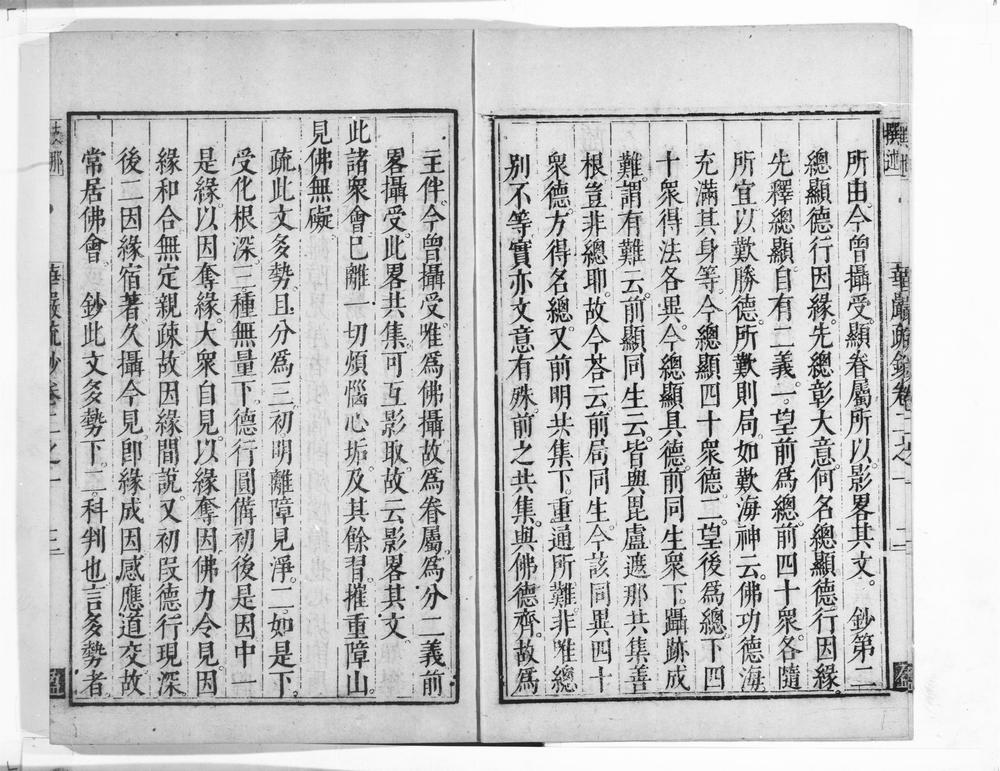 所由。今曾攝受。顯眷屬所以。影畧其文。　鈔第二
總顯德行因緣。先總彰大意。何名總顯德行因緣。
先釋總顯自有二義。一望前爲總。前四十衆。各隨
所宜以歎勝德。所歎則局。如歎海神云。佛功德海
充滿其身等。今總顯四十衆德。二望後爲總。下四
十衆得法各異。今總顯具德。前同生衆下。躡跡成
難。謂有難云。前顯同生云。皆與毘盧遮那共集善
根。豈非總耶。故今荅云。前局同生。今該同異四十
衆德。方得名總。又前明共集下。重通所難。非唯總
別不等。實亦文意有殊。前之共集。與佛德齊。故爲
主伴。今曾攝受。唯爲佛攝。故爲眷屬。爲分二義。前
畧攝受。此畧共集。可互影取。故云影畧其文。
此諸衆會。已離一切煩惱心垢。及其餘習。摧重障山。
見佛無礙。
疏此文多勢。且分爲三。初明離障見淨。二如是下。
受化根深。三種無量下。德行圓備。初後是因。中一
是緣。以因奪緣。大衆自見。以緣奪因。佛力令見。因
緣和合無定親疎。故因緣間說。又初段德行現深。
後二因緣宿著。久攝今見。卽緣成因。感應道交。故
常居佛會。　鈔此文多勢下。二科判也。言多勢者。
華嚴疏鈔卷二之一
盈